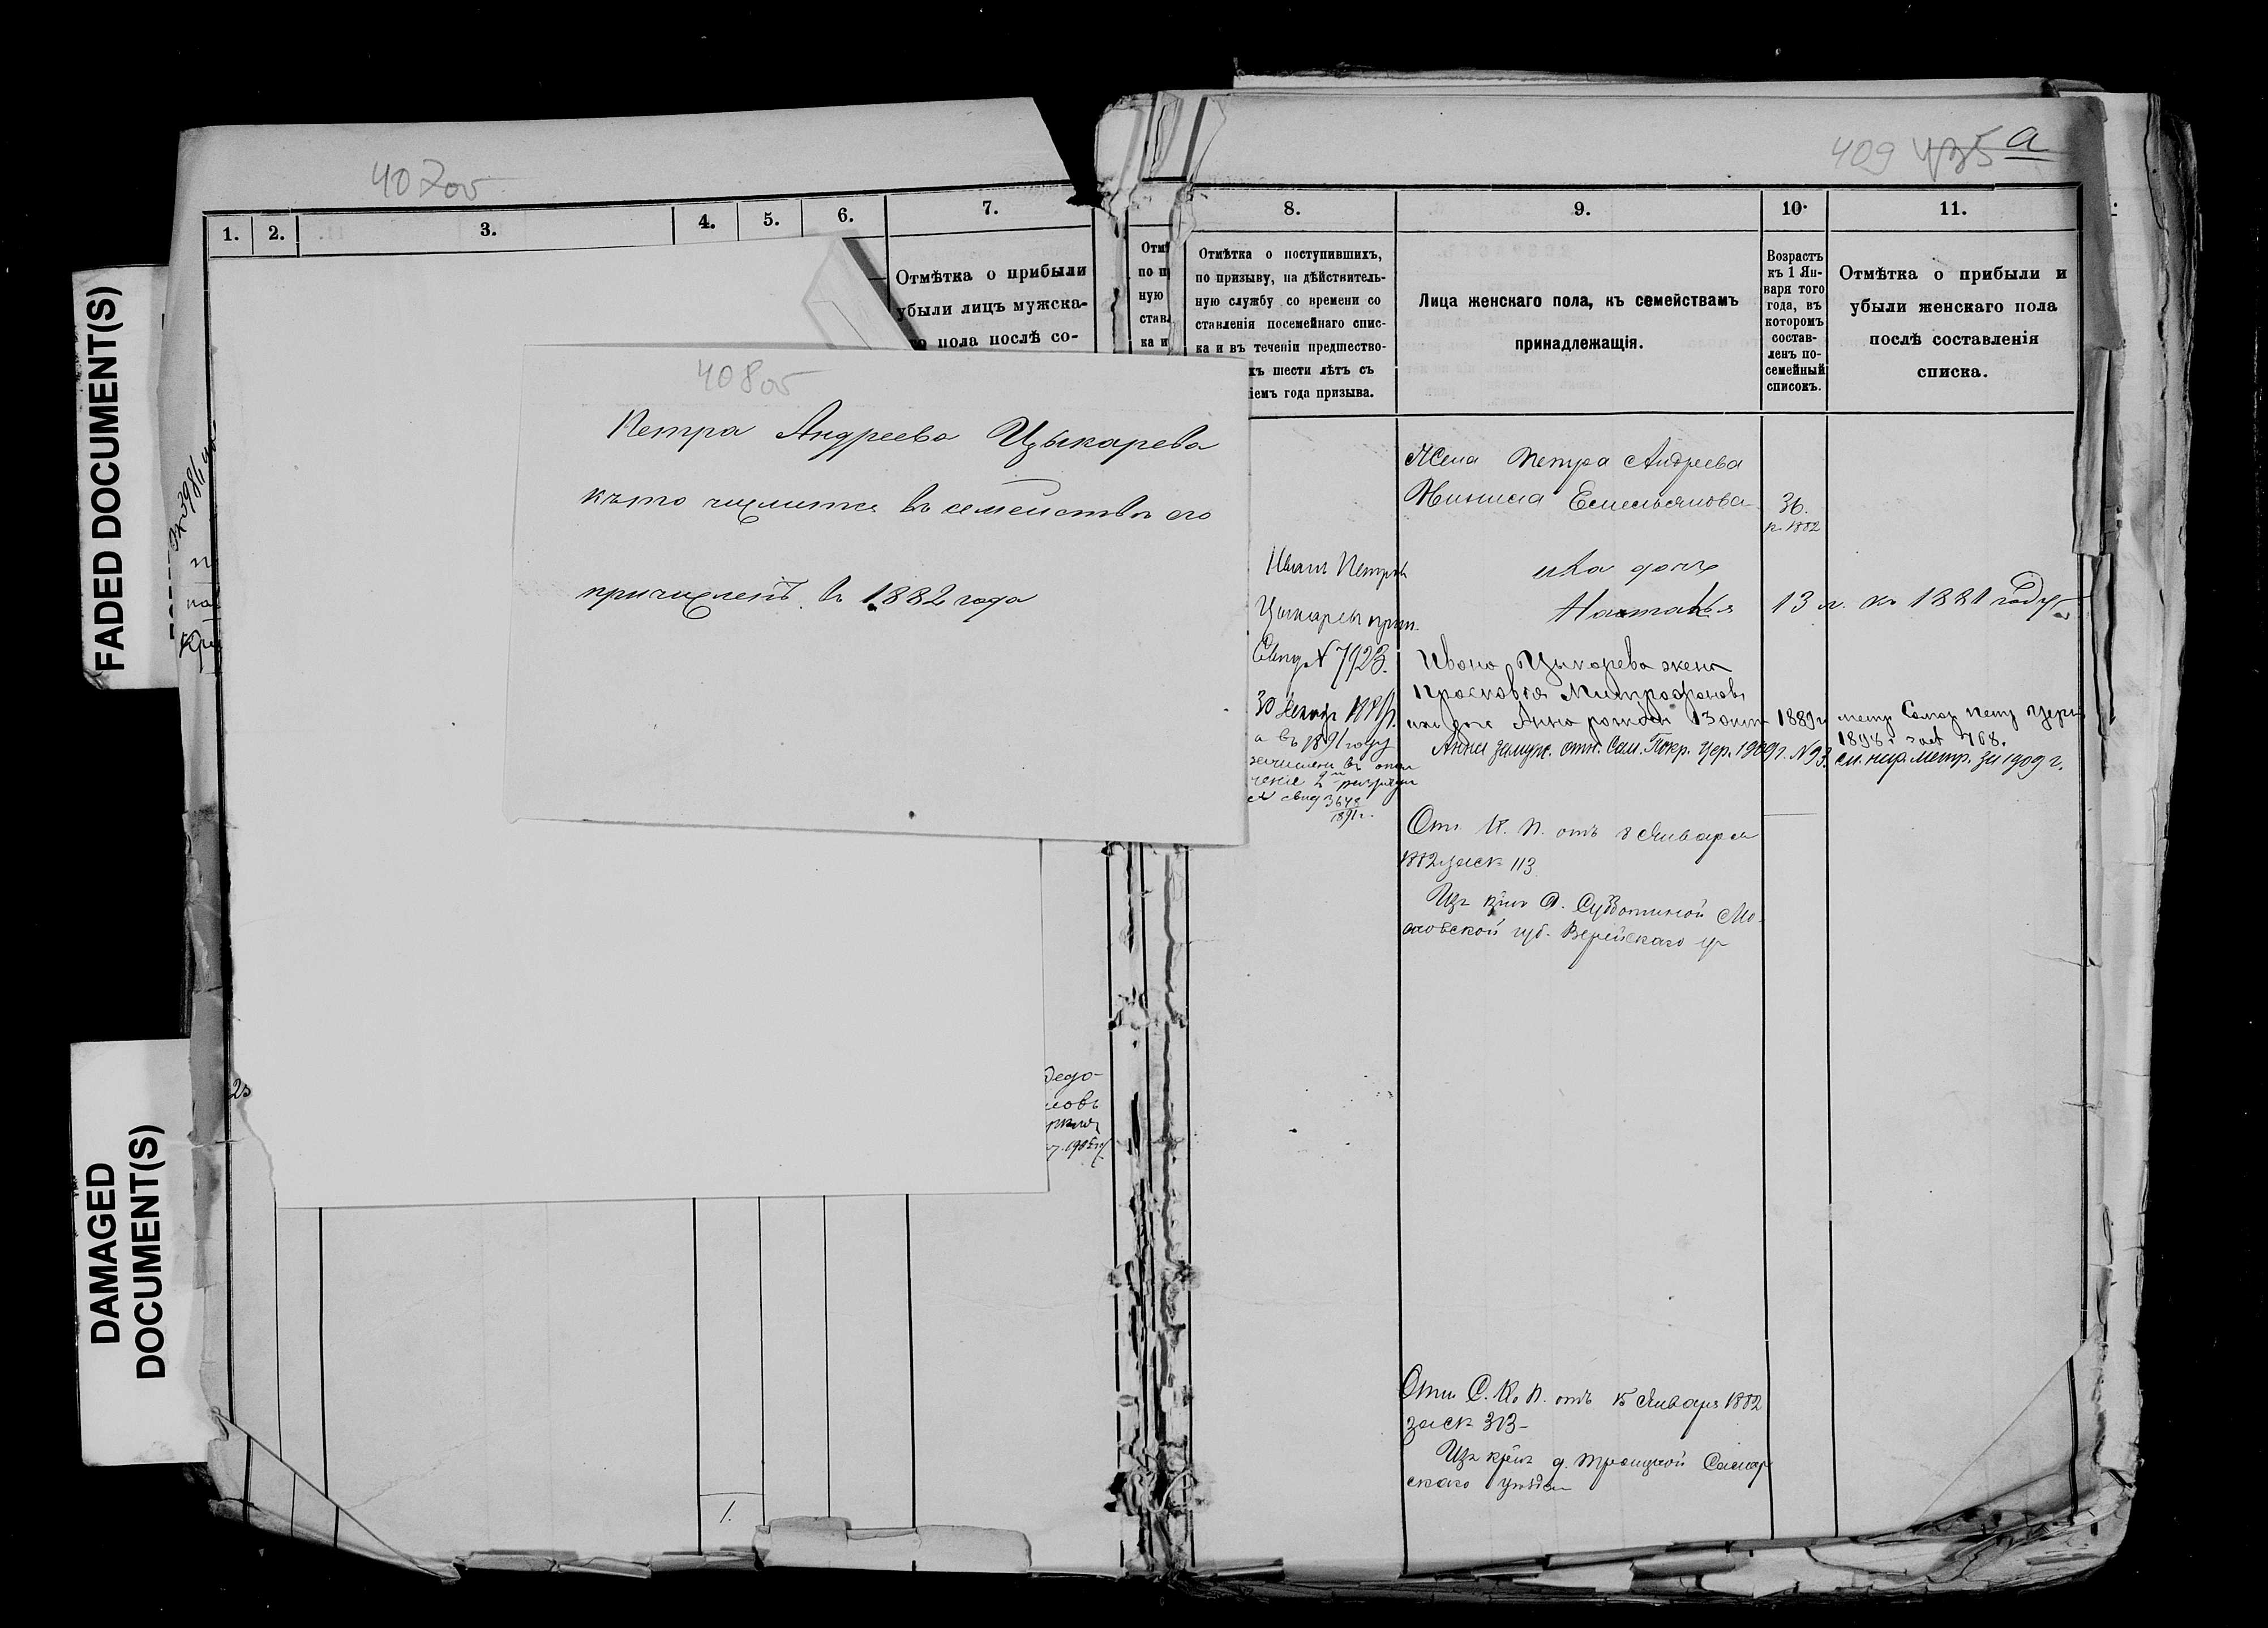 FADED DOCUMENT(S)
DAMAGED
DOCUMENT(S)
407об
1. 2. 3. 4. 5. 6. 7.
Отмѣтка о прибыли
убыли лицъ мужска-
го пола послѣ со-
408об
Петра Андреева Цыкарева
кто числится въ семействѣ его
причисленъ въ 1882 года
1.
409 а
8. 9. 10. 11.
Отмѣтка о поступившихъ,
по призыву, на дѣйствитель-
ную службу со времени со
ставленія посемейнаго спис-
ка и въ теченіи предшество-
хъ шести лѣтъ съ
іемъ года призыва.
Лица женскаго пола, къ семействамъ
принадлежащія.
Возрастъ
къ 1 Ян-
варя того
года, въ
которомъ
состав-
ленъ по-
семейный
списокъ.
Отмѣтка о прибыли и
убыли женскаго пола
послѣ составленія
списка.
Иванъ Петровъ
Цыкаревъ
Свид № 7923.
30
а въ 1891 году
зачисленъ въ опол
ченіе 2 разряда
№ свид 3648
1891 г.
Жена Петра Андреева
Емельянова 36.
к 1882
ихъ дочь
Наталья 13 л. къ 1881 году
Ивана Цыкарева жена
Прасковья Митрофанова
ихъ дочь Анна 13 окт 1889 г метр Самар Петр церк
1898 г 768.
Анна замуж. отм. Сам. Покр. цер. 1909 г. № 93. см. метр. за 1909 г.
Отн К. П. отъ 8 Января
1882 за № 113
Изъ крест д. Субботиной Мо-
сковской губ. Верейскаго у
Отн С. К. П. отъ 15 Января 1882
за № 313-
Изъ крест д. Троицкой Самар
скаго уѣзда